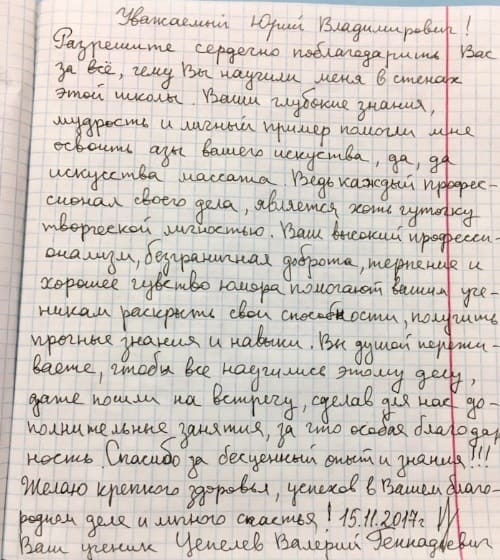 Уважаемый Юрий Владимирович!
Разрешите сердечно поблагодарить Вас
за всё, чему Вы научили меня в стенах
этой школы. Ваши глубокие знания,
мудрость и личный пример помогли мне
освоить азы вашего искуства, да, да
искусства массажа. Ведь каждый профес-
сионал своего дела, является хоть чуточку
творческой личностью. Ваш высокий професси-
онализм, безграничная доброта, терпение и
хорошее чувство юмора помогают вашим уче-
никам раскрыть свои способности, получить
прочные знания и навыки. Вы душой пережи-
ваете, чтобы все научились этому делу,
даже пошли на встречу, сделав для нас до-
полнительные занятия, за что особая благодар
ность. Спасибо за бесценный опыт и знания!!!
Желаю крепкого здоровья, успехов в Вашем благо-
родном деле и много счастья! 15.11.2017г
Ваш ученик Цепелев Валерий Геннадьевич